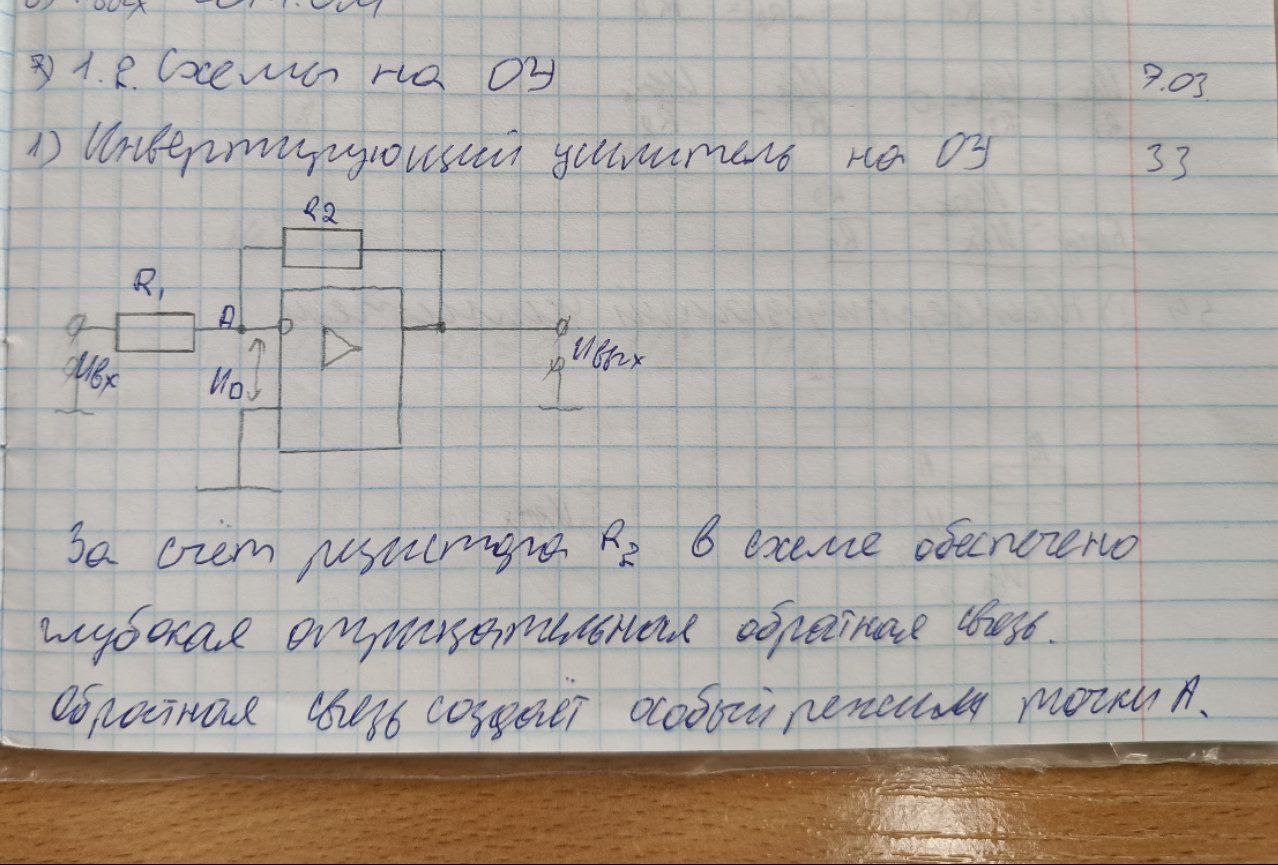 7) 1.2. Схемы на ОУ 7.03
1) Инвертирующий усилитель на ОУ 33
R2
R1
A
Uвх
UD
Uвых
За счёт резистора R2 в схеме обеспечено
глубокая отрицательная обратная связь.
Обратная связь создаёт особый режим точки А.